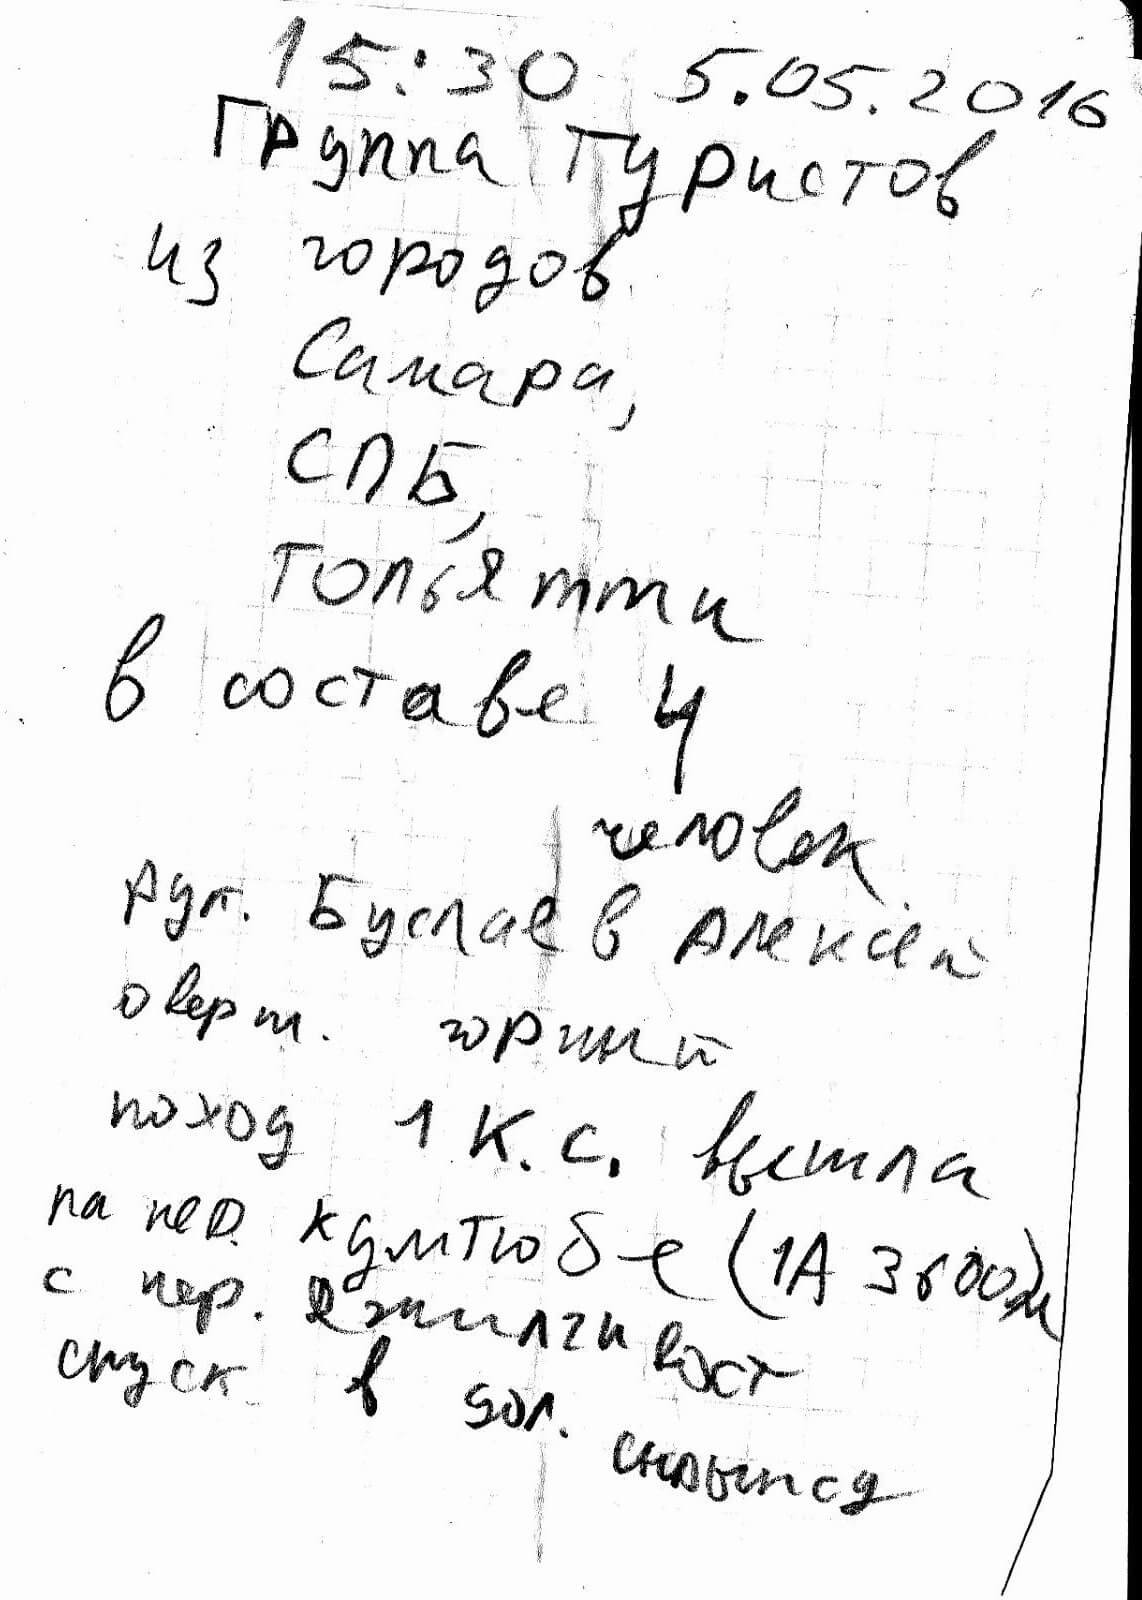 15:30 5.05.2016
Группа туристов
из городов
Самара,
СПБ,
Тольятти
в составе 4
человек
рук. Буслаев Алексей
соверш. горный
поход 1 к.с. вышла
на пер. Кумтюбе (1А 3600м)
с пер. Джилги вост
спуск в дол.